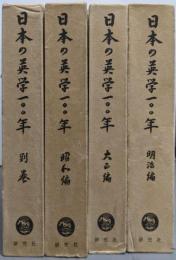 日本の英学一〇〇年
明治編
研究社
日本の英学一〇〇年
大正編
研究社
日本の英学一〇〇年
昭和編
研究社
日本の英学一〇〇年
別巻
研究社